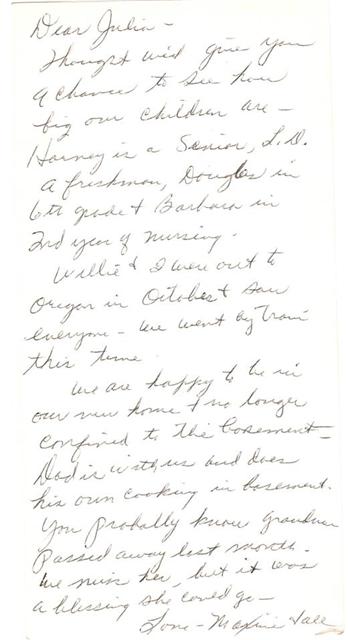 Dear Julia -
Thought we'd give you
a chance to see how
big our children are -
Harvey is a Senior, L.D.
a freshman, Douglas in
6th grade & Barbara in
2nd year of nursing.
Willie & I were out to
Oregon in October & saw
everyone - we went by train
this time.
We are happy to be in
our new home & no longer
confined to the basement -
Dad is with us and does
his own cooking in basement.
You probably know grandma
passed away last month.
We miss her, but it was
a blessing she could go -
Love - Maxine & all